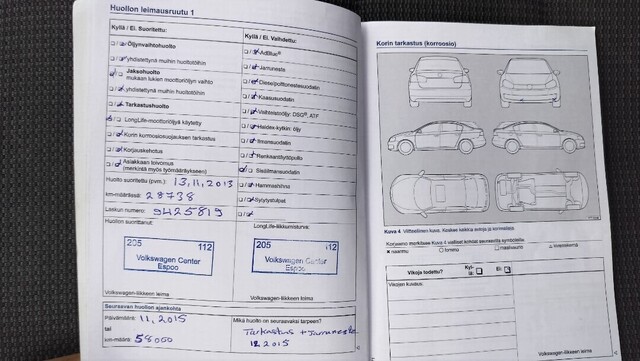 Huollon leimausruutu 1
Kyllä / Ei. Suoritettu:
Öljynvaihtohuolto
yhdistettynä muihin huoltotöihin
Jaksohuolto
mukaan lukien moottoriöljyn vaihto
yhdistettynä muihin huoltotöihin
Tarkastushuolto
LongLife-moottoriöljyä käytetty
Korin korroosiosuojauksen tarkastus
Korjauskehotus
Asiakkaan toivomus
(merkintä myös työmääräykseen)
Huolto suoritettu (pvm.): 13.11.2013
km-määrässä: 28738
Laskun numero: 9425819
Huollon suorittanut:
205 112
Volkswagen Center
Espoo
Volkswagen-liikkeen leima
Kyllä / Ei. Vaihdettu:
AdBlue®
Jarruneste
Dieselpolttonestesuodatin
Kaasusuodatin
Vaihteistoöljy: DSG®, ATF
Haldex-kytkin: öljy
Ilmansuodatin
Renkaantäyttöpullo
Sisäilmansuodatin
Hammashihna
Sytytystulpat
LongLife-liikkumisturva:
205 112
Volkswagen Center
Espoo
Volkswagen-liikkeen leima
Seuraavan huollon ajankohta
Päivämäärä: 11.2015
tai
km-määrä: 58000
Mikä huolto on seuraavaksi tarpeen?
Tarkastus + Jarruneste
Korin tarkastus (korroosio)
Kuva 4
Korissa
Vikoja todettu?
Kyl-
lä:
Ei:
Vikojen kuvaus:
Volkswagen-liikkeen leima